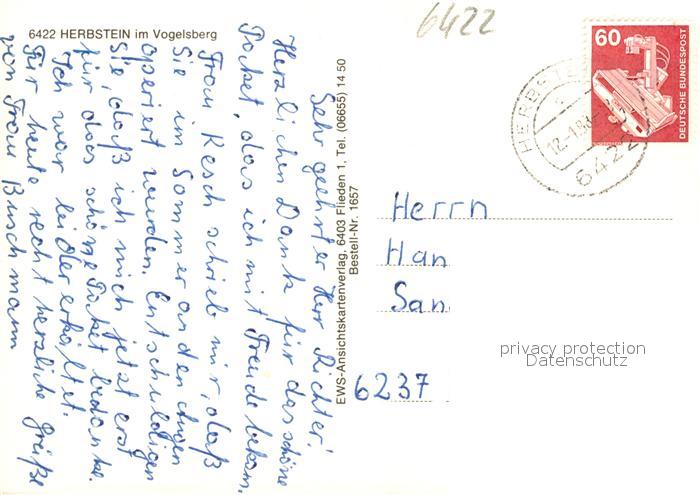 6422 HERBSTEIN im Vogelsberg
6422
60
DEUTSCHE BUNDESPOST
HERBSTEIN
12.-1.
6422
Sehr geehrter Herr Richter,
Herzlichen Dank für das schöne
Paket, das ich mit Freude bekam.
Frau Resch schrieb mir, daß
Sie im Sommer an den Augen
operiert wurden. Entschuldigen
Sie, daß ich mich jetzt erst
für das schöne Paket bedanke.
Ich war leider erkältet.
Für heute recht herzliche Grüße
von Frau Buschmann
EWS-Ansichtskartenverlag, 6403 Flieden 1, Tel. (06655) 14 50
Bestell-Nr. 1657
Herrn
Han
San
6237
privacy protection
Datenschutz